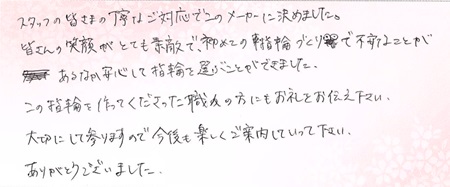 スタッフの皆さまの丁寧なご対応でこのメーカーに決めました。
皆さんの笑顔がとても素敵で、初めての指輪づくりで不安なことが
あるなか安心して指輪を選ぶことができました。
この指輪を作ってくださった職人の方にもお礼をお伝え下さい。
大切にして参りますので今後も楽しくご案内していって下さい。
ありがとうございました。